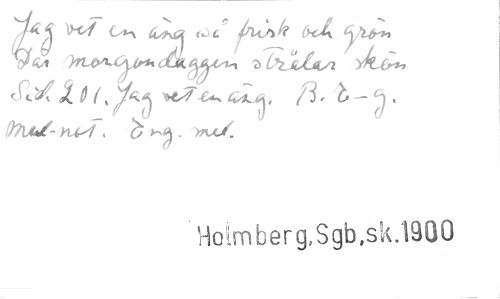 Jag vet en äng så frisk och grön
Där morgondaggen strålar skön
Sid. 201. Jag vet en äng. B. E-g.
Mel-not. Eng. mel.
Holmberg,Sgb,sk.1900